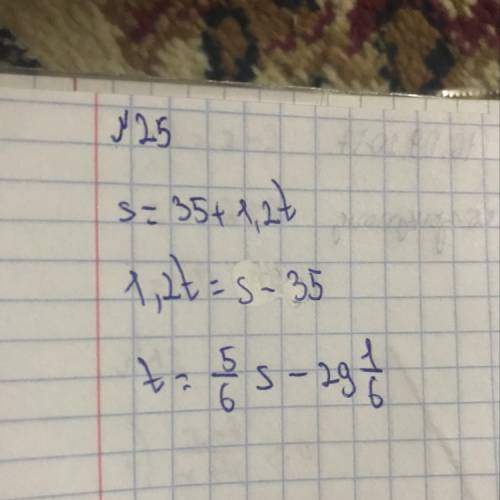 №25
s = 35 + 1,2t
1,2t = s - 35
t = 5/6 s - 29 1/6